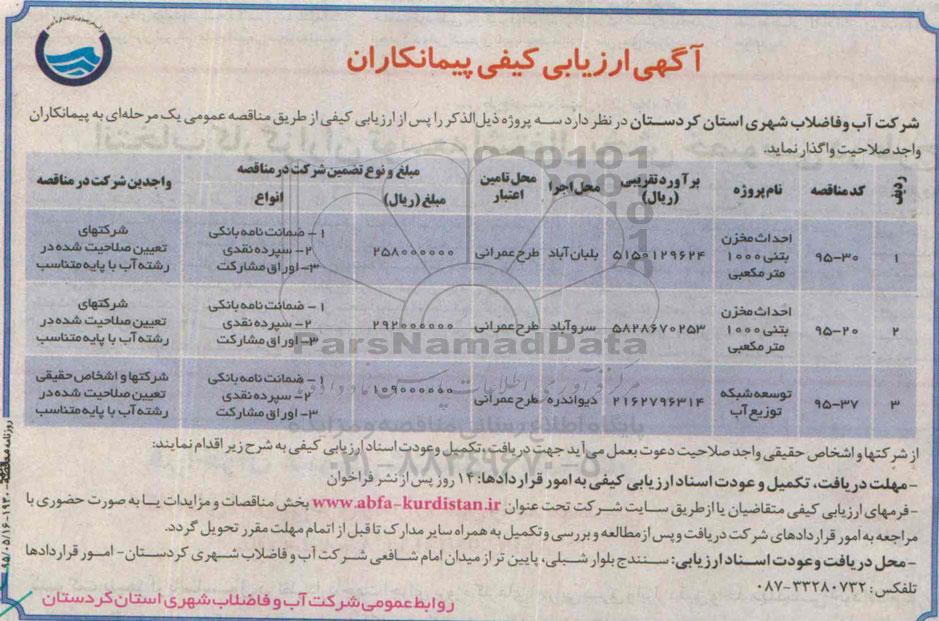 آگهی ارزیابی کیفی پیمانکاران
شرکت آب و فاضلاب شهری استان کردستان در نظر دارد سه پروژه ذیل‌الذکر را پس از ارزیابی کیفی از طریق مناقصه عمومی یک مرحله‌ای به پیمانکاران
واجد صلاحیت واگذار نماید.
ردیف | کد مناقصه | نام پروژه | برآورد تقریبی (ریال) | محل اجرا | محل تامین اعتبار | مبلغ و نوع تضمین شرکت در مناقصه | واجدین شرکت در مناقصه
مبلغ (ریال) | انواع
۱ | ۹۵-۳۰ | احداث مخزن بتنی ۱۰۰۰ متر مکعبی | ۵۱۵۰۱۲۹۶۲۴ | بلبان آباد | طرح عمرانی | ۲۵۸۰۰۰۰۰۰ | ۱- ضمانت نامه بانکی ۲- سپرده نقدی ۳- اوراق مشارکت | شرکتهای تعیین صلاحیت شده در رشته آب با پایه متناسب
۲ | ۹۵-۲۰ | احداث مخزن بتنی ۱۰۰۰ متر مکعبی | ۵۸۲۸۶۷۰۲۵۳ | سروآباد | طرح عمرانی | ۲۹۲۰۰۰۰۰۰ | ۱- ضمانت نامه بانکی ۲- سپرده نقدی ۳- اوراق مشارکت | شرکتهای تعیین صلاحیت شده در رشته آب با پایه متناسب
۳ | ۹۵-۳۷ | توسعه شبکه توزیع آب | ۲۱۶۲۷۹۶۳۱۴ | دیواندره | طرح عمرانی | ۱۰۹۰۰۰۰۰۰ | ۱- ضمانت نامه بانکی ۲- سپرده نقدی ۳- اوراق مشارکت | شرکتها و اشخاص حقیقی تعیین صلاحیت شده در رشته آب با پایه متناسب
ParsNamadData
از شرکتها و اشخاص حقیقی واجد صلاحیت دعوت بعمل می‌آید جهت دریافت، تکمیل وعودت اسناد ارزیابی کیفی به شرح زیر اقدام نمایند:
- مهلت دریافت، تکمیل و عودت اسناد ارزیابی کیفی به امور قراردادها: ۱۴ روز پس از نشر فراخوان
- فرمهای ارزیابی کیفی متقاضیان یا از طریق سایت شرکت تحت عنوان www.abfa-kurdistan.ir بخش مناقصات و مزایدات یا به صورت حضوری با
مراجعه به امور قراردادهای شرکت دریافت و پس از مطالعه و بررسی و تکمیل به همراه سایر مدارک تا قبل از اتمام مهلت مقرر تحویل گردد.
- محل دریافت وعودت اسناد ارزیابی: سنندج بلوار شبلی، پایین تر از میدان امام شافعی شرکت آب و فاضلاب شهری کردستان- امور قراردادها
تلفکس: ۳۳۲۸۰۷۳۲-۰۸۷
روابط عمومی شرکت آب و فاضلاب شهری استان کردستان